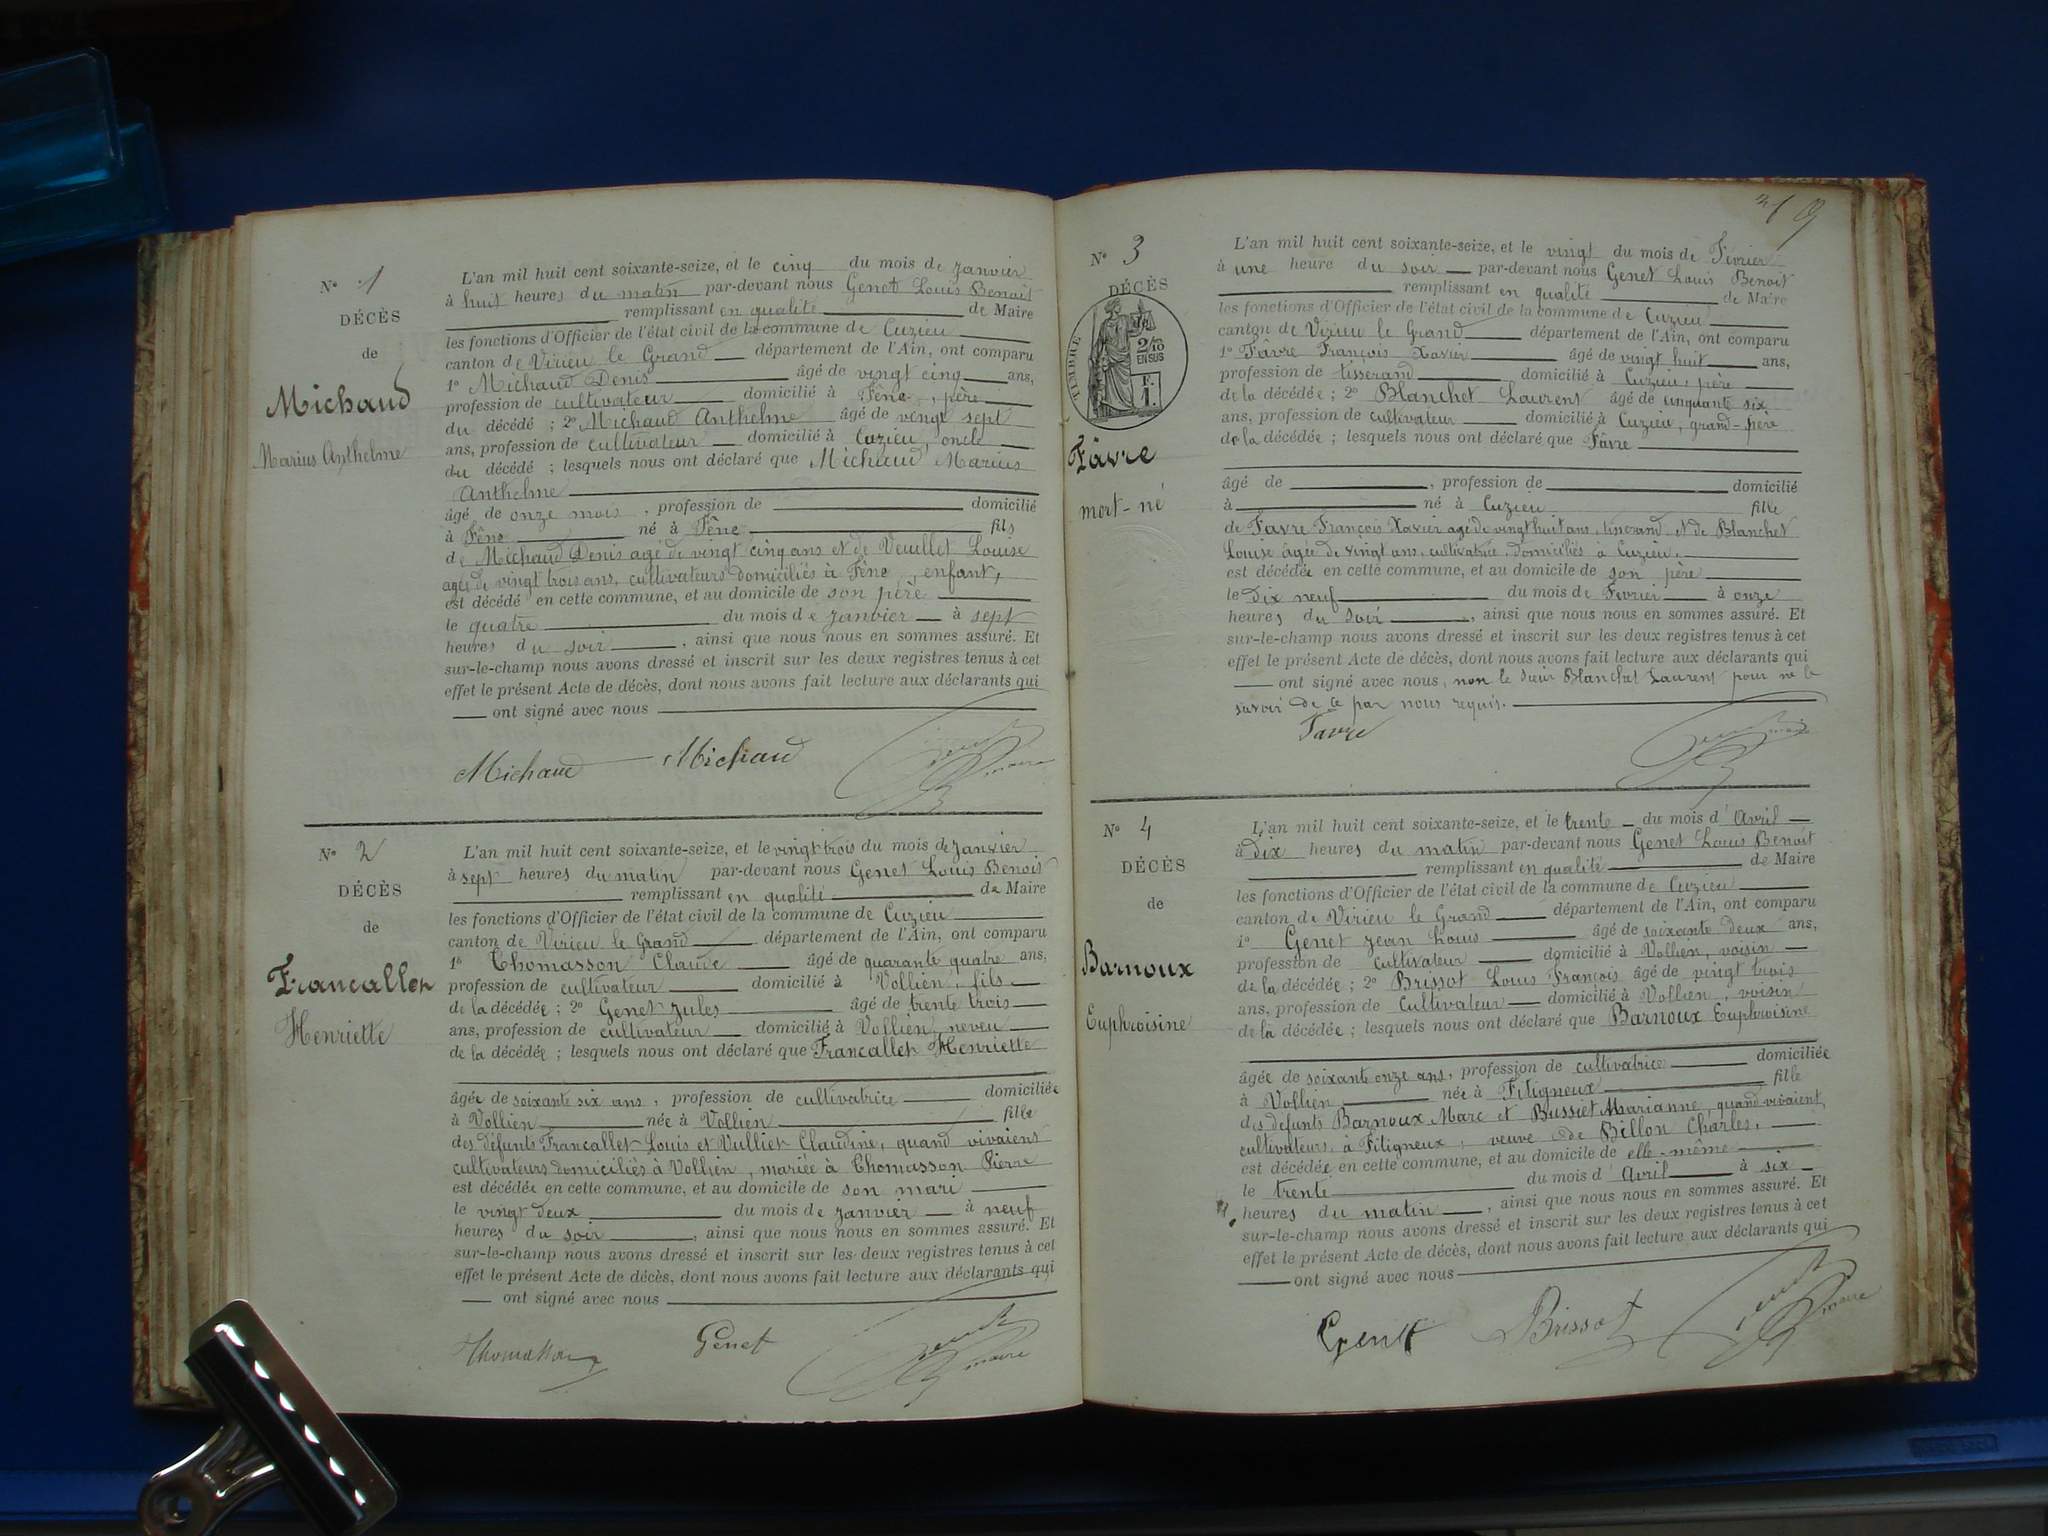 N° 1
DÉCÈS
de
Michaud
Marius Anthelme
L'an mil huit cent soixante-seize, et le cinq du mois de Janvier
à huit heures du matin par-devant nous Genet Louis Benoit
remplissant en qualité de Maire
les fonctions d'Officier de l'état civil de la commune de Cuzieu
canton de Virieu le Grand département de l'Ain, ont comparu
1° Michaud Denis âgé de vingt cinq ans,
profession de cultivateur domicilié à Fêne, père
du décédé ; 2° Michaud Anthelme âgé de vingt sept
ans, profession de cultivateur domicilié à Cuzieu, oncle
du décédé ; lesquels nous ont déclaré que Michaud Marius
Anthelme
âgé de onze mois, profession de domicilié
à Fêne né à Fêne fils
de Michaud Denis agé de vingt cinq ans et de Veuillet Louise
agée de vingt trois ans, cultivateurs domiciliés à Fêne, enfant,
est décédé en cette commune, et au domicile de son père
le quatre du mois de Janvier à sept
heures du soir, ainsi que nous nous en sommes assuré. Et
sur-le-champ nous avons dressé et inscrit sur les deux registres tenus à cet
effet le présent Acte de décès, dont nous avons fait lecture aux déclarants qui
ont signé avec nous
Michaud Michaud maire
N° 2
DÉCÈS
de
Francallet
Henriette
L'an mil huit cent soixante-seize, et le vingt trois du mois de Janvier
à sept heures du matin par-devant nous Genet Louis Benoit
remplissant en qualité de Maire
les fonctions d'Officier de l'état civil de la commune de Cuzieu
canton de Virieu le Grand département de l'Ain, ont comparu
1° Thomasson Claude âgé de quarante quatre ans,
profession de cultivateur domicilié à Vollien, fils
de la décédée ; 2° Genet Jules âgé de trente trois
ans, profession de cultivateur domicilié à Vollien, neveu
de la décédée ; lesquels nous ont déclaré que Francallet Henriette
âgée de soixante six ans, profession de cultivatrice domiciliée
à Vollien née à Vollien fille
des défunts Francallet Louis et Vulliet Claudine, quand vivaient
cultivateurs domiciliés à Vollien, mariée à Thomasson Pierre
est décédée en cette commune, et au domicile de son mari
le vingt deux du mois de Janvier à neuf
heures du soir, ainsi que nous nous en sommes assuré. Et
sur-le-champ nous avons dressé et inscrit sur les deux registres tenus à cet
effet le présent Acte de décès, dont nous avons fait lecture aux déclarants qui
ont signé avec nous
Thomasson Genet maire
N° 3
DÉCÈS
TIMBRE
2/10
EN SUS
F.
1.
Fâvre
mort-né
L'an mil huit cent soixante-seize, et le vingt du mois de Fevrier
à une heure du soir par-devant nous Genet Louis Benoit
remplissant en qualité de Maire
les fonctions d'Officier de l'état civil de la commune de Cuzieu
canton de Virieu le Grand département de l'Ain, ont comparu
1° Fâvre François Xavier âgé de vingt huit ans,
profession de tisserand domicilié à Cuzieu, père
de la décédée ; 2° Blanchet Laurent âgé de cinquante six
ans, profession de cultivateur domicilié à Cuzieu, grand-père
de la décédée ; lesquels nous ont déclaré que Fâvre
âgé de, profession de domicilié
à né à Cuzieu fille
de Favre François Xavier agé de vingt huit ans, tisserand et de Blanchet
Louise âgée de vingt ans, cultivatrice, domiciliés à Cuzieu.
est décédée en cette commune, et au domicile de son père
le Dix neuf du mois de Fevrier à onze
heures du soir, ainsi que nous nous en sommes assuré. Et
sur-le-champ nous avons dressé et inscrit sur les deux registres tenus à cet
effet le présent Acte de décès, dont nous avons fait lecture aux déclarants qui
ont signé avec nous, non le sieur Blanchet Laurent pour ne le
savoir de ce par nous requis.
Favre maire
N° 4
DÉCÈS
de
Barnoux
Euphroisine
L'an mil huit cent soixante-seize, et le trente du mois d'Avril
à Dix heures du matin par-devant nous Genet Louis Benoit
remplissant en qualité de Maire
les fonctions d'Officier de l'état civil de la commune de Cuzieu
canton de Virieu le Grand département de l'Ain, ont comparu
1° Genet Jean Louis âgé de soixante deux ans,
profession de cultivateur domicilié à Vollien, voisin
de la décédée ; 2° Brissot Louis François âgé de vingt trois
ans, profession de Cultivateur domicilié à Vollien, voisin
de la décédée ; lesquels nous ont déclaré que Barnoux Euphroisine
âgée de soixante onze ans, profession de cultivatrice domiciliée
à Vollien née à Fitigneux fille
des defunts Barnoux Marc et Bussiet Marianne, quand vivaient
cultivateurs, à Fitigneux, veuve de Billon Charles,
est décédée en cette commune, et au domicile de elle-même
le trente du mois d'Avril à six
heures du matin, ainsi que nous nous en sommes assuré. Et
sur-le-champ nous avons dressé et inscrit sur les deux registres tenus à cet
effet le présent Acte de décès, dont nous avons fait lecture aux déclarants qui
ont signé avec nous
Genet Brissot maire